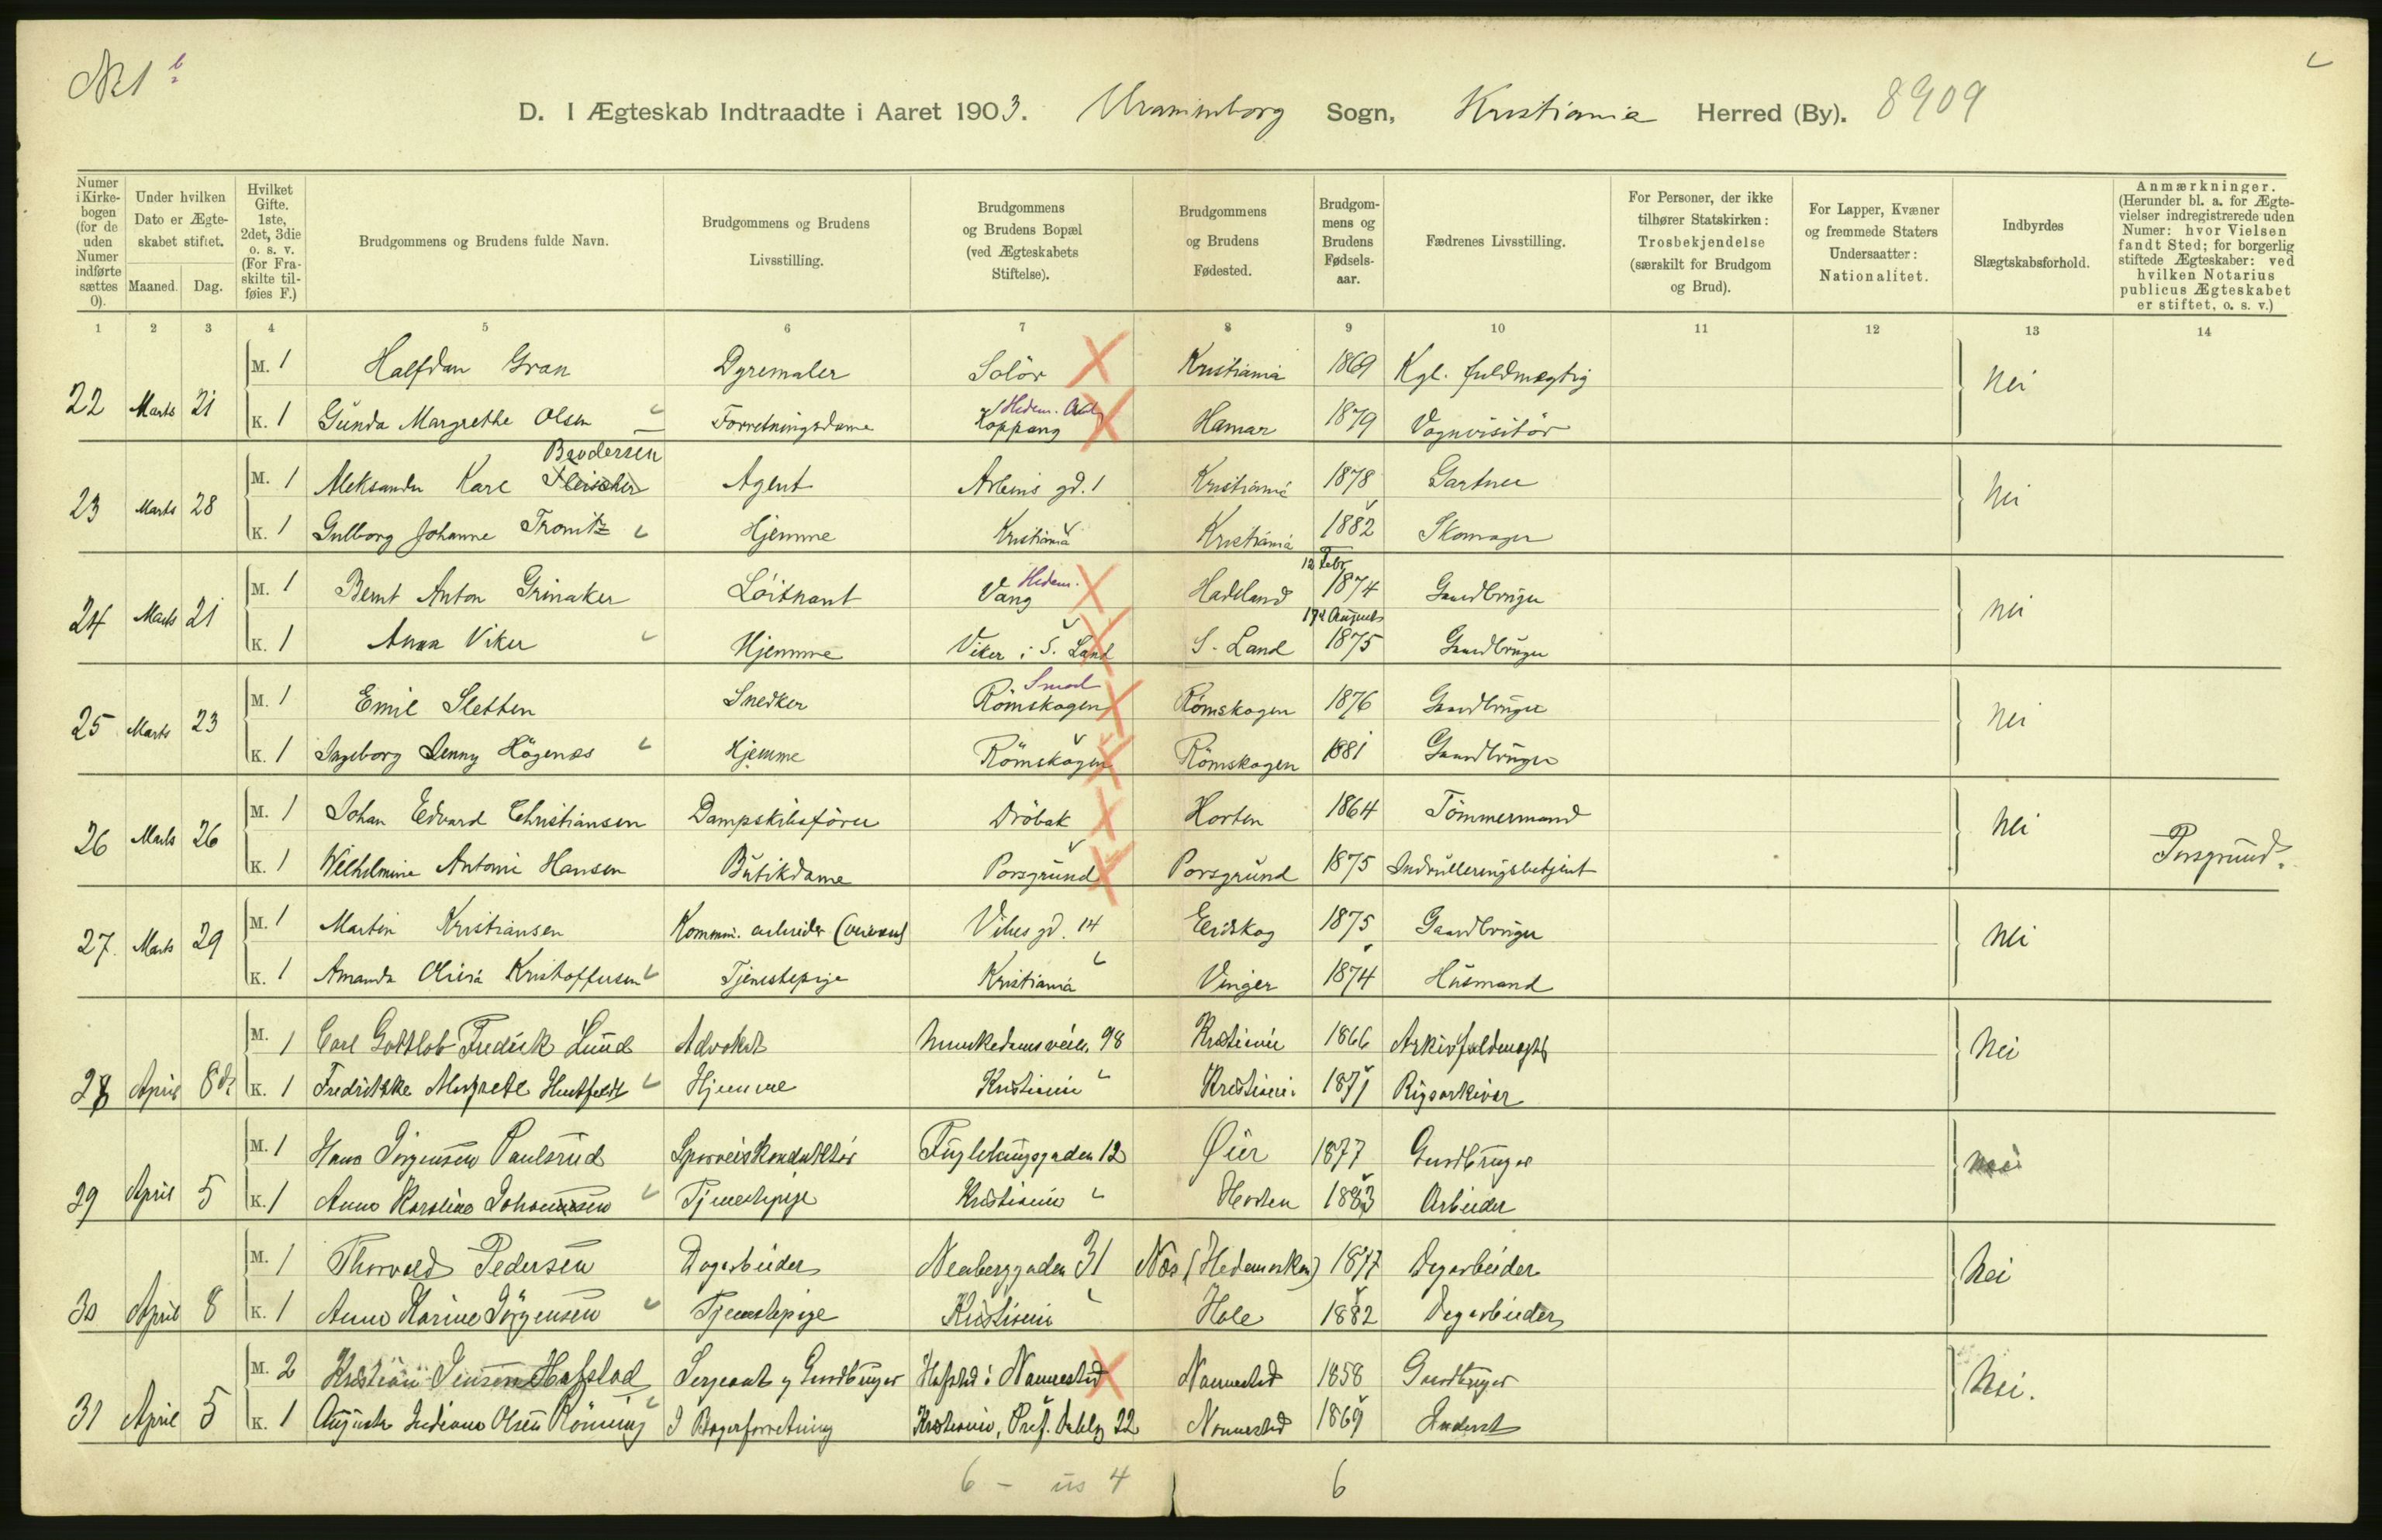 No 1 b
D. I Ægteskab Indtraadte i Aaret 1903. Uranienborg Sogn, Kristiania Herred (By). 8909
Numer i Kirkebogen (for de uden Numer indførte sættes 0).
Under hvilken Dato er Ægteskabet stiftet.
Maaned. Dag.
Hvilket Gifte. 1ste, 2det, 3die o. s. v. (For Fraskilte tilføies F.)
Brudgommens og Brudens fulde Navn.
Brudgommens og Brudens Livsstilling.
Brudgommens og Brudens Bopæl (ved Ægteskabets Stiftelse).
Brudgommens og Brudens Fødested.
Brudgommens og Brudens Fødselsaar.
Fædrenes Livsstilling.
For Personer, der ikke tilhører Statskirken: Trosbekjendelse (særskilt for Brudgom og Brud).
For Lapper, Kvæner og fremmede Staters Undersaatter: Nationalitet.
Indbyrdes Slægtskabsforhold.
Anmærkninger. (Herunder bl. a. for Ægtevielser indregistrerede uden Numer: hvor Vielsen fandt Sted; for borgerlig stiftede Ægteskaber: ved hvilken Notarius publicus Ægteskabet er stiftet, o. s. v.)
1 2 3 4 5 6 7 8 9 10 11 12 13 14
22 Marts 21 M. 1 Halfdan Gran Dyremaler Solör Kristiania 1869 Kgl. fuldmægtig nei
Hedem.
K. 1 Gunda Margrethe Olsen Forretningsdame Koppang Hamar 1879 Vognvisitör
Brodersen
23 Marts 28 M. 1 Aleksander Karl Fleischer Agent Arbins gd. 1 Kristiania 1878 Gartner nei
K. 1 Gulborg Johanne Tronitz Hjemme Kristiania Kristiania 1882 Skomager
Hedem. 12 Febr
24 Marts 21 M. 1 Bernt Anton Grinaker Löitnant Vang Hadeland 1874 Gaardbruger nei
17de August
K. 1 Anna Viker Hjemme Viker i S. Land S. Land 1875 Gaardbruger
Smaal
25 Marts 23 M. 1 Emil Sletten Snedker Römskogen Römskogen 1876 Gaardbruger nei
K. 1 Ingeborg Jenny Högenæs Hjemme Römskogen Römskogen 1881 Gaardbruger
26 Marts 26 M. 1 Johan Edvard Christiansen Dampskibsförer Dröbak Horten 1864 Tömmermand nei Porsgrund.
K. 1 Wilhelmine Antonie Hansen Butikdame Porsgrund Porsgrund 1875 Indrulleringsbetjent
27. Marts 29 M. 1 Martin Kristiansen Kommu. arbeider Vibes gd. 14 Eidskog 1875 Gaardbruger nei
K. 1 Amanda Olivia Kristoffersen Tjenestepige Kristiania Vinger 1874 Husmand
28 April 8de M. 1 Carl Gottlob Fredrik Lund Advokat Munkedamsveien 98 Kristiania 1866 Arkivfuldmægtig nei
K. 1 Fredrikke Margrete Huitfeldt Hjemme Kristiania Kristiania 1871 Rigsarkivar
29 April 5 M. 1 Hans Jörgensen Paulsrud Sporveiskonduktör Fuglehaugsgaden 12 Øier 1877 Gaardbruger nei
K. 1 Anna Karoline Johannesen Tjenestepige Kristiania Horten 1883 Arbeider
30 April 8 M. 1 Thorvald Pedersen Dagarbeider Neuberggaden 31 Næs (Hedemarken) 1877 Dagarbeider nei
K. 1 Anna Karine Jörgensen Tjenestepige Kristiania Hole 1882 Dagarbeider
31 April 5 M. 2 Kristian Jensen Hafstad Sergeant og Gaardbruger Hafstad i Nannestad Nannestad 1858 Gaardbruger nei.
K. 1 Augusta Indiana Olsen Röning I Bagerforretning Kristiania, Prof. Dahlsg 22 Nannestad 1869 Inderst
6 - us 4 6